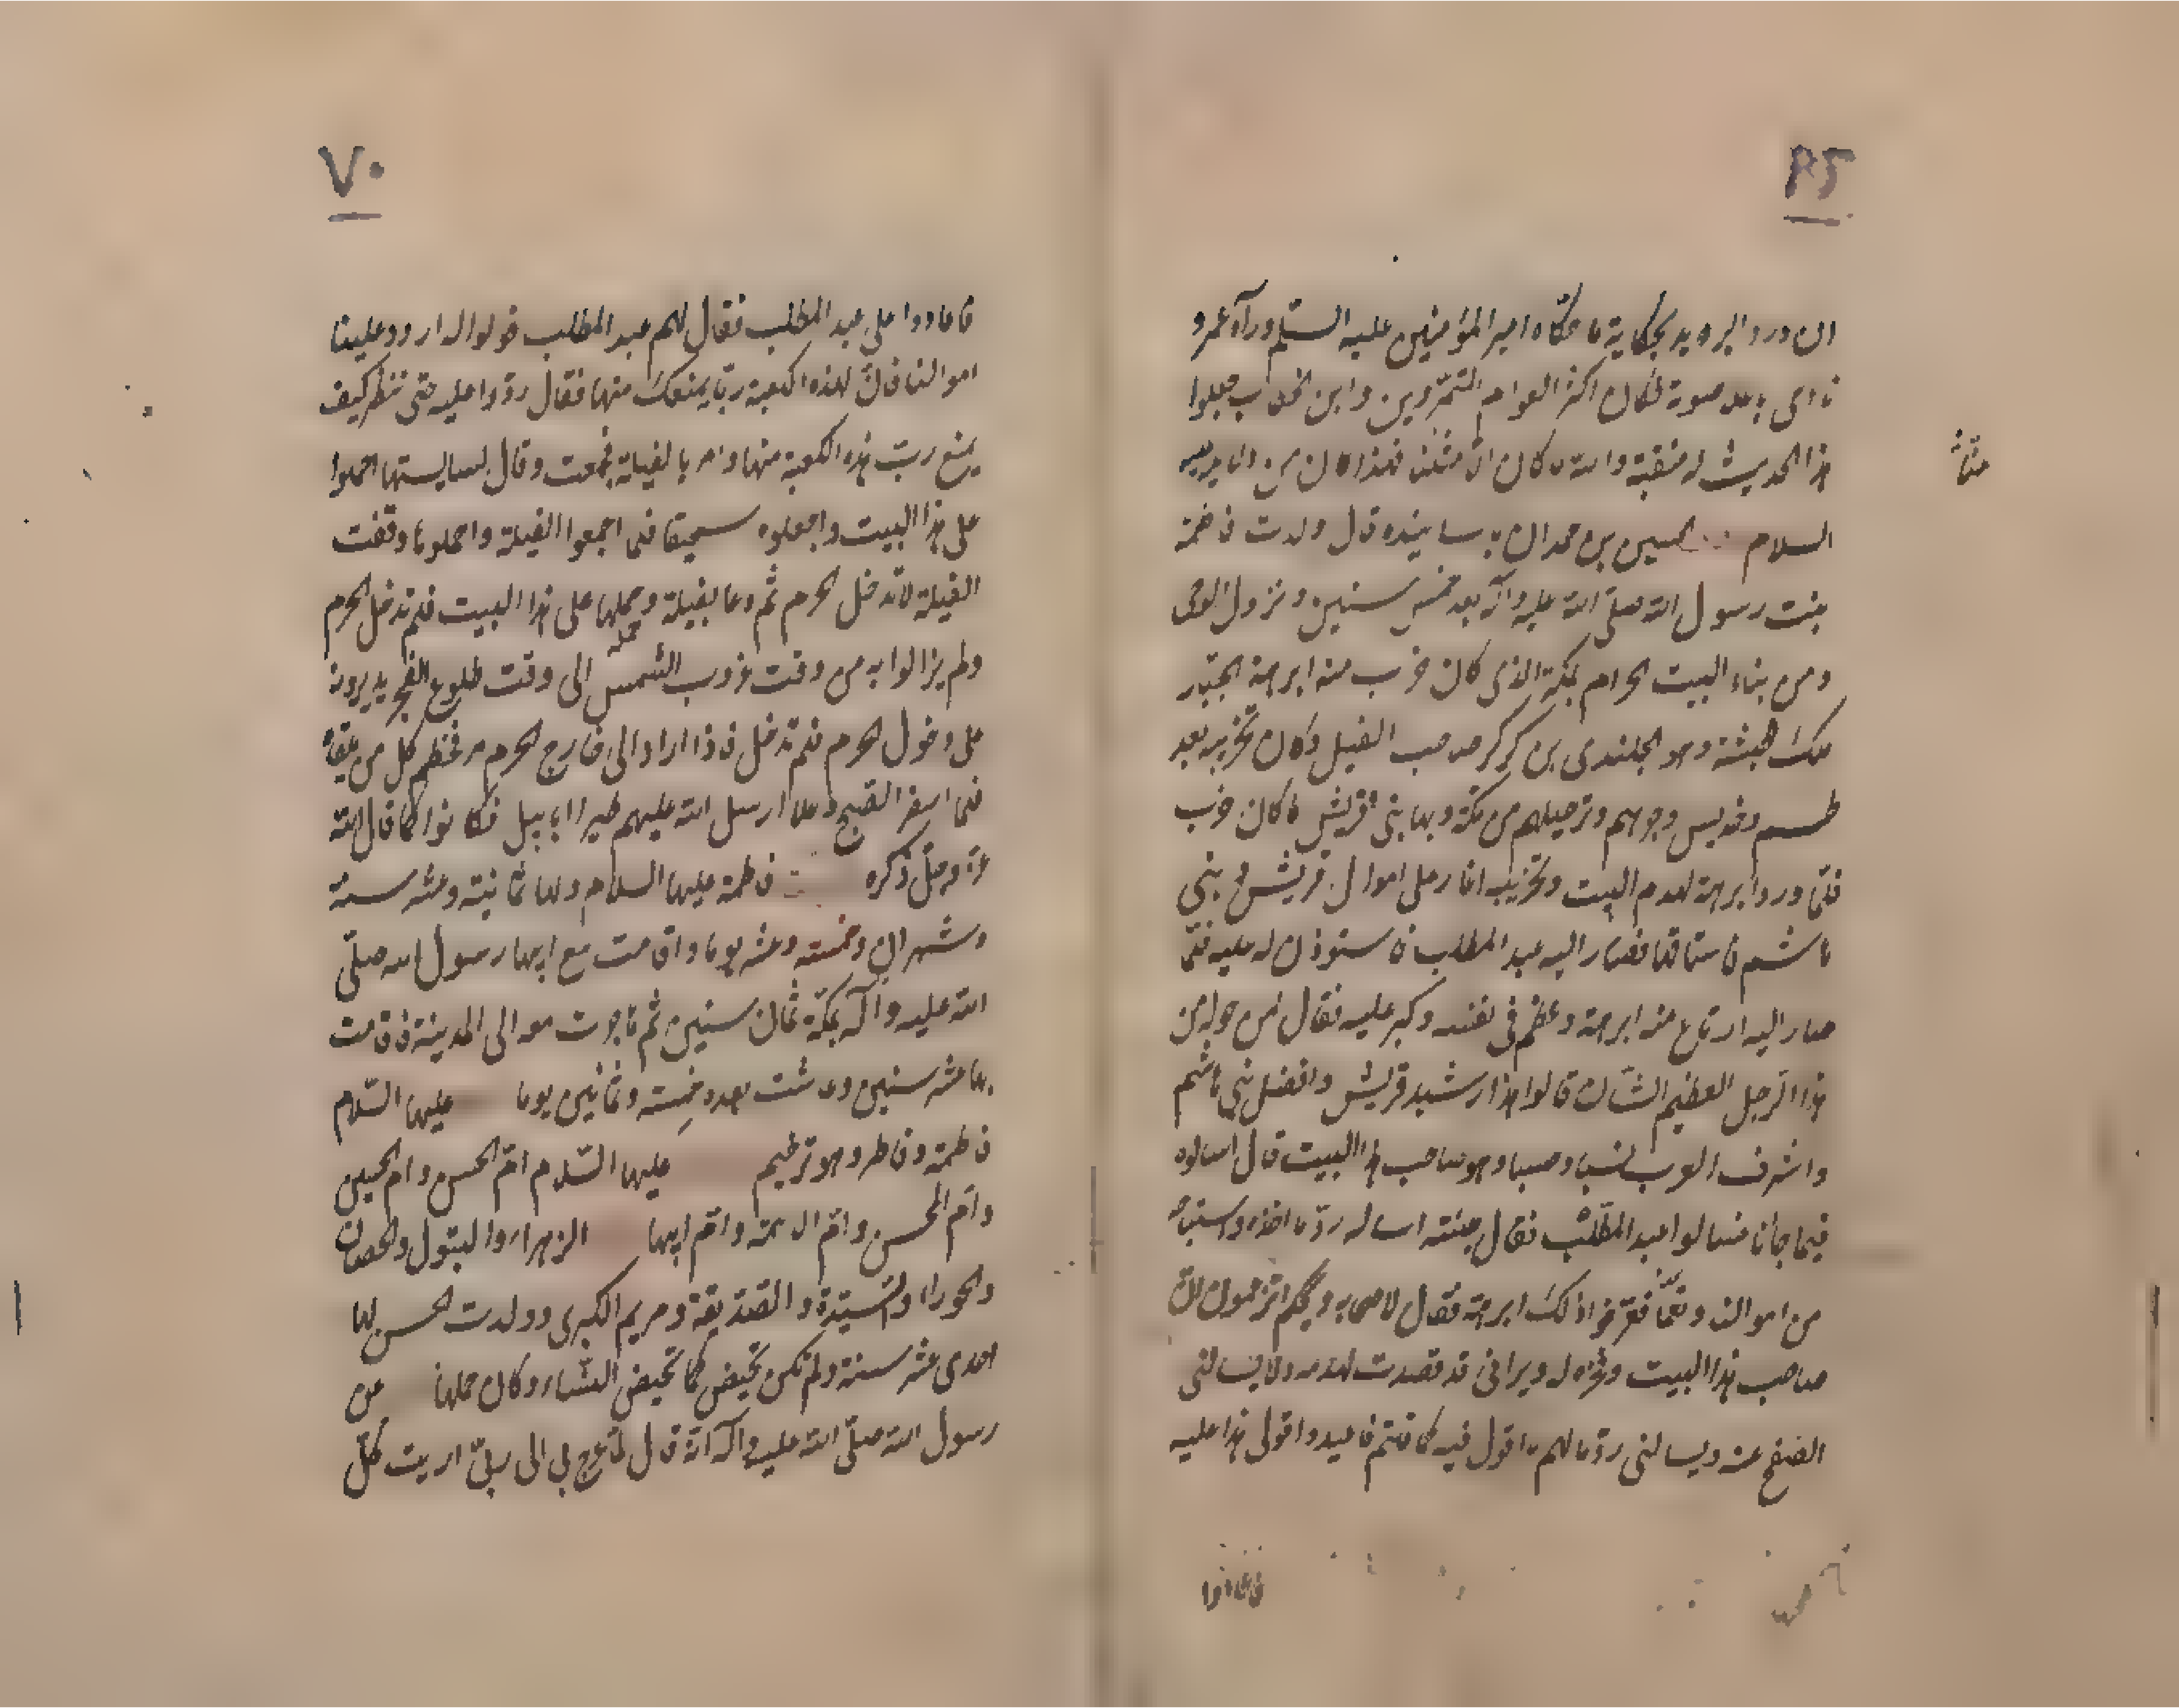 ان ورد البريد بحكاية ما حكاه امير المؤمنين عليه السلم ورآه عمرو
نادى باعلا صوته لكان اكثر العوام المتمردين وابن الخطاب جعلوا
هذا الحديث له منقبة والله ما كان الا مثلبا فهذا كان من دلائله عليه
السلام الحسين بن حمدان باسانيده قال ولدت فاطمة
بنت رسول الله صلى الله عليه وآله بعد خمس سنين ونزول الوحى
ومن بناء البيت الحرام بمكة الذى كان خرب منه ابرهة الجبار
ملك الحبشة وهو الجلندى بن كركر صاحب الفيل وكان تخريبه بعد
طسم وجديس وجرهم وترحيلهم من مكة وبها بنى قريش ما كان خرب
فلما ورد ابرهة لهدم البيت وتخريبه اغار على اموال قريش و بنى
هاشم فاستاقها فصار اليه عبد المطلب فاستوذن له عليه فلما
صار اليه ارتاع منه ابرهة وعظم فى نفسه وكبر عليه فقال لمن حوله من
هذا الرجل العظيم الشان قالوا هذا رشيد قريش وافضل بنى هاشم
واشرف العرب نسبا وحسبا وهو صاحب هذا البيت قال اسالوه
فيما جأنا فسالوا عبد المطلب فقال جئته اساله رد ما اخذه واستباحه
من اموالنا ونعمنا فعرفوا ذلك ابرهة فقال لاصحابه ويحكم اتزعمون ان
صاحب هذا البيت وفخره له ويرانى قد قصدت لهدمه ولا يسالنى
الصفح عنه ويسالنى رد مالهم ما اقول فيه كما قلتم فاعيدوا قولى هذا عليه
فاعادوا
٧٠
فاعادوا على عبد المطلب فقال لهم عبد المطلب قولوا له اردد علينا
اموالنا فان لهذه الكعبة ربا يمنعك منها فقال ردوا عليه حتى ننظر كيف
يمنع رب هذه الكعبة منها وامر بالفيلة فجمعت وقال لسايستها احملوا
على هذا البيت واجعلوه سحيقا فلما اجمعوا الفيلة وحملوها وقفت
الفيلة لا تدخل الحرم ثم دعا بفيلة وحملها على هذا البيت فلم تدخل الحرم
ولم يزالوا به من وقت غروب الشمس الى وقت طلوع الفجر يديرونه
على دخول الحرم فلم تدخل فاذا ارادوا الى خارج الحرم مر فحطم كل من يلقاه
فلما اسفر الصبح وعلا ارسل الله عليهم طيرا ابابيل فكانوا كما قال الله
عز وجل ذكره فاطمة عليها السلام ولها ثمانية وعشر سنة
وشهران وخمسة وعشر يوما واقامت مع ابيها رسول الله صلى
الله عليه وآله بمكة ثمان سنين ثم هاجرت معه الى المدينة فاقامت
بها عشر سنين وعاشت بعده خمسة وثمانين يوما عليها السلام
فاطمة وفاطر وهو ترخيم عليها السلام ام الحسن وام الحسين
وام المحسن وام الائمة وام ابيها الزهراء والبتول والحصان
والحوراء والسيدة والصديقة ومريم الكبرى وولدت الحسن لها
احدى عشر سنة ولم تكن تحيض كما تحيض النساء وكان حملها عن
رسول الله صلى الله عليه وآله انه قال لما عرج بى الى ربى اريت كل